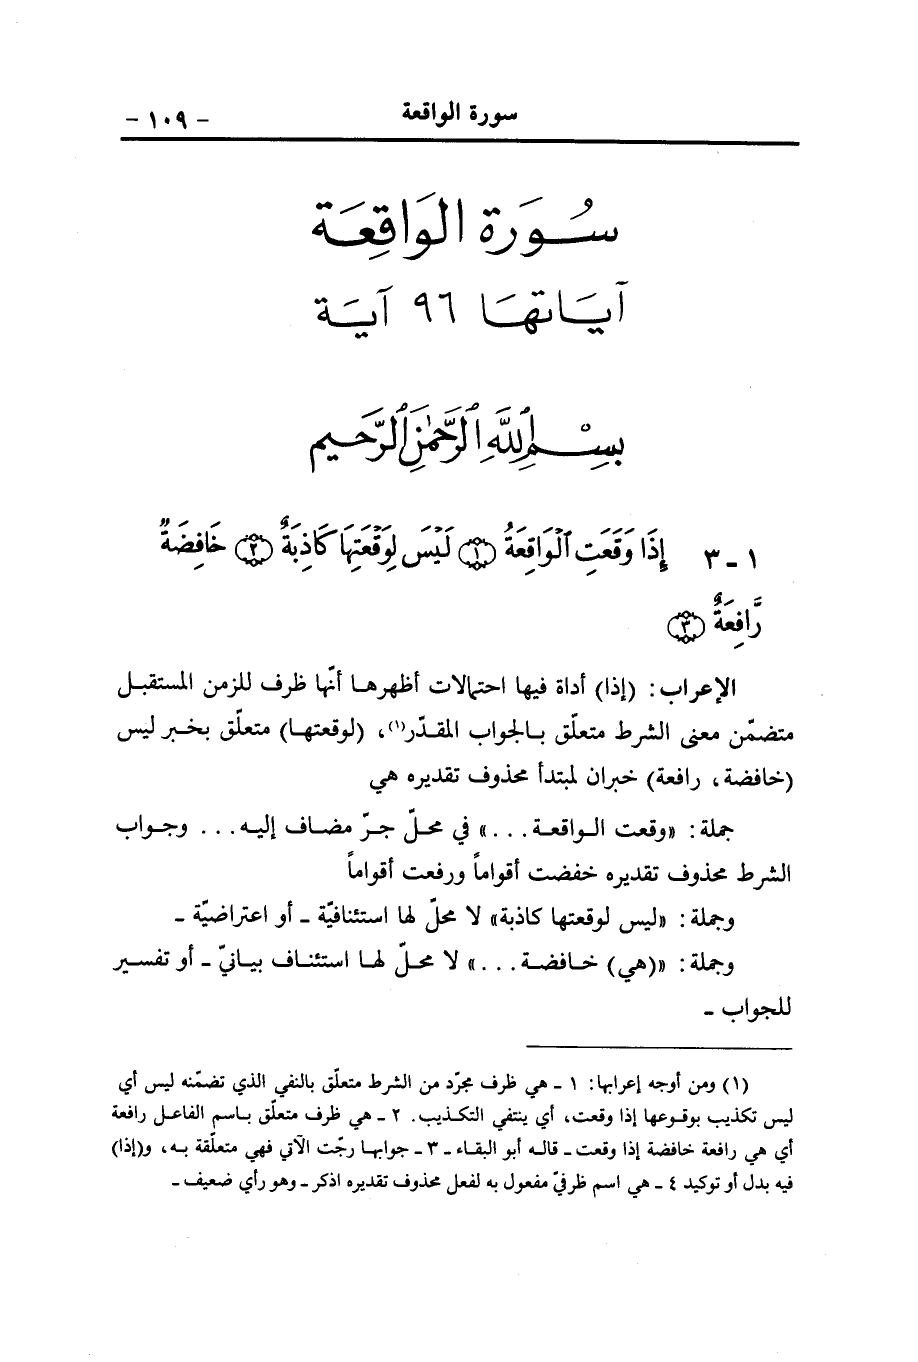 سورة الواقعة
- ١٠٩ -
سُورَة الوَاقِعَة
آيَاتهَا ٩٦ آيَة
بِسْمِ اللَّهِ الرَّحْمَٰنِ الرَّحِيمِ
١ - ٣ إِذَا وَقَعَتِ ٱلْوَاقِعَةُ ﴿١﴾ لَيْسَ لِوَقْعَتِهَا كَاذِبَةٌ ﴿٢﴾ خَافِضَةٌ
رَّافِعَةٌ ﴿٣﴾
الإعراب: (إذا) أداة فيها احتمالات أظهرها أنّها ظرف للزمن المستقبل
متضمّن معنى الشرط متعلّق بالجواب المقدّر(١)، (لوقعتها) متعلّق بخبر ليس
(خافضة، رافعة) خبران لمبتدأ محذوف تقديره هي
جملة: «وقعت الواقعة...» في محلّ جرّ مضاف إليه... وجواب
الشرط محذوف تقديره خفضت أقواماً ورفعت أقواماً
وجملة: «ليس لوقعتها كاذبة» لا محلّ لها استئنافيّة ـ أو اعتراضيّة ـ
وجملة: «(هي) خافضة...» لا محلّ لها استئناف بيانيّ ـ أو تفسير
للجواب ـ
(١) ومن أوجه إعرابها: ١ ـ هي ظرف مجرّد من الشرط متعلّق بالنفي الذي تضمّنه ليس أي
ليس تكذيب بوقوعها إذا وقعت، أي ينتفي التكذيب. ٢ ـ هي ظرف متعلّق باسم الفاعل رافعة
أي هي رافعة خافضة إذا وقعت ـ قاله أبو البقاء ـ ٣ ـ جوابها رجّت الآتي فهي متعلّقة به، و(إذا)
فيه بدل أو توكيد ٤ ـ هي اسم ظرفيّ مفعول به لفعل محذوف تقديره اذكر ـ وهو رأي ضعيف ـ